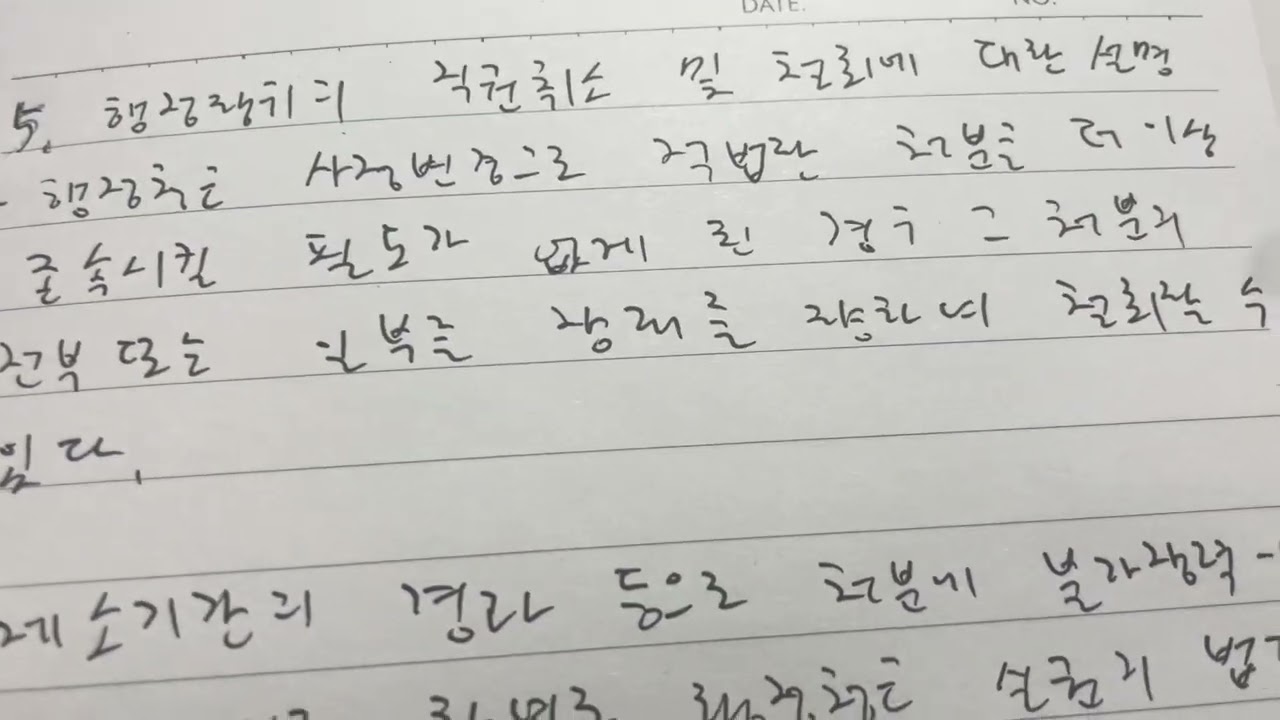 DATE. NO.
5. 행정행위의 직권취소 및 철회에 대한 설명
- 행정청은 사정변경으로 적법한 처분을 더 이상
존속시킬 필요가 없게 된 경우 그 처분의
전부 또는 일부를 장래를 향하여 철회할 수
있다.
제소기간의 경과 등으로 처분에 불가쟁력
행정청은 실권의 법